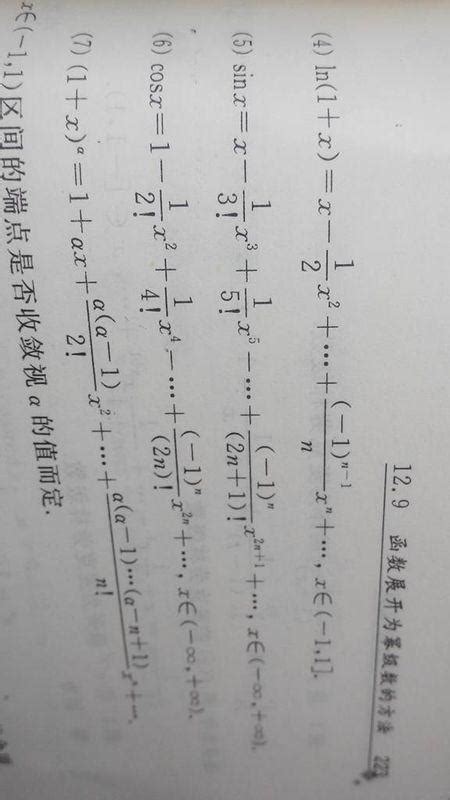 12.9 函数展开为幂级数的方法 223
(4) ln(1+x)=x-\frac{1}{2}x^2+…+\frac{(-1)^{n-1}}{n}x^n+…, x∈(-1,1].
(5) sin x=x-\frac{1}{3!}x^3+\frac{1}{5!}x^5-…+\frac{(-1)^n}{(2n+1)!}x^{2n+1}+…, x∈(-∞,+∞).
(6) cos x=1-\frac{1}{2!}x^2+\frac{1}{4!}x^4-…+\frac{(-1)^n}{(2n)!}x^{2n}+…, x∈(-∞,+∞).
(7) (1+x)^α=1+αx+\frac{α(α-1)}{2!}x^2+…+\frac{α(α-1)…(α-n+1)}{n!}x^n+…,
x∈(-1,1)区间的端点是否收敛视α的值而定.